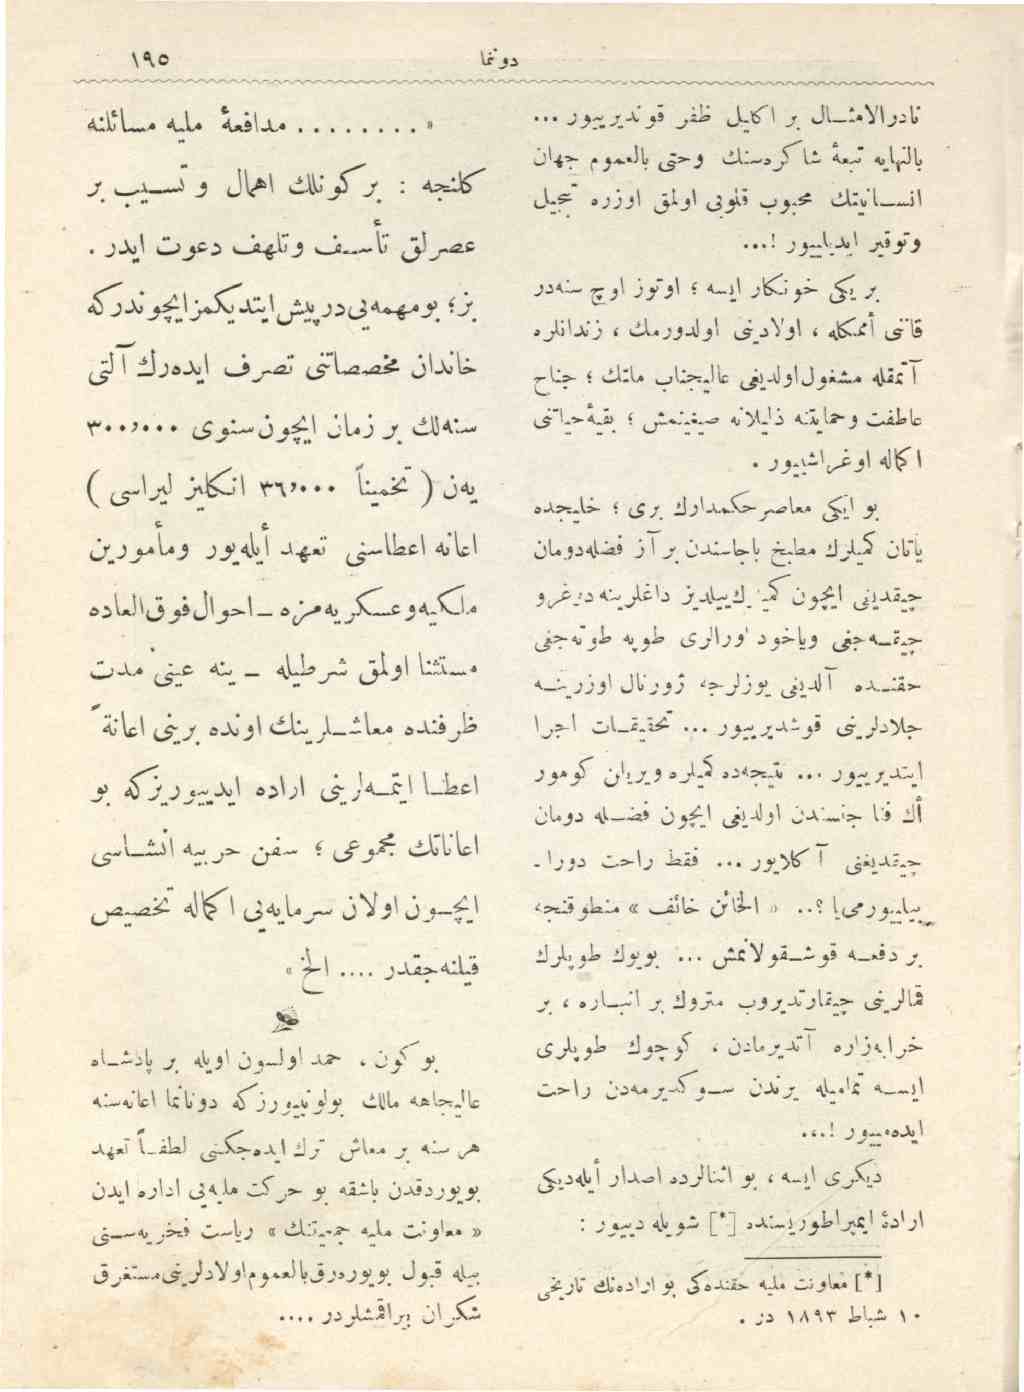 دوننما
١٩٥
نادرالامثـال بر اكليل ظفر قونديرييور ...
بالنهايه تبعهٔ شاكره‌سنك وحتى بالعموم جهان
انسـانيتك محبوب قلوبى اولمق اوزره تبجيل
وتوقير ايديلييور !...
بر يكى خونكار ايسه ؛ اوتوز اوچ سنه‌در
قاننى أممكله ، اولادينى اولدورمك ، زندانلره
آتمقله مشغول‌اولديغى عاليجناب ملتك ؛ جناح
عاطفت وحمايتنه ذليلانه صيغينمش ؛ بقيهٔ‌حياتنى
اكماله اوغراشييور .
بو ايكى معاصرحكمدارك برى ؛ خليجده
ياتان كميلرك مطبخ باجاسندن بر آز فضله‌دومان
چيقديغى ايچون كمينك‌ييلديز داغلرينه دوغرو
چيقـه‌جغى وياخود اورالرى طوپه طوته‌جغى
حقنـده آلديغى يوزلرجه ژورنال اوزرينـه
جلادلرينى قوشديرييور ... تحقيقـات اجرا
ايتديرييور ... نتيجه‌ده كميلره ويريلن كومور
أك فنا جنسندن اولديغى ايچون فضـله دومان
چيقديغنى آكلايور ... فقط راحت دورا ـ
بيلييورمى‌يا ؟.. « الخائن خائف » منطوقنجه
بر دفعـه قوشـقولانمش ... بويوك طوپلرك
قمالرينى چيقارتديروب متروك بر انبـاره ، بر
خرابه‌زاره آتديرمادن ، كوچوك طوپلرى
ايسـه تماميله يرندن سـوكديرمه‌دن راحت
ايده‌مييور !...
ديكرى ايسه ، بو اثنالرده اصدار أيله‌ديكى
ارادهٔ ايمپراطوريسنده [*] شويله دييور :
[*] معاونت مليه حقنده‌كى بو اراده‌نك تاريخى
١٠ شباط ١٨٩٣ در .
« ........ مدافعهٔ مليه مسائلنه
كلنجه : بر كونلك اهمال و تسـيب بر
عصرلق تأسـف وتلهف دعوت ايدر .
بز ؛ بومهمه‌يى‌درپيش‌ايتديكمزايچوندركه
خاندان مخصصاتنى تصرف ايده‌رك آلتى
سنه‌لك بر زمان ايچون‌سنوى ٣٠٠,٠٠٠
يه‌ن ( تخميناً ٣٦,٠٠٠ انكليز ليراسى )
اعانه اعطاسنى تعهد أيله‌يور ومأمورين
ملكيه‌وعسكريه‌مزه ـ احوال‌فوق‌العاده
مستثنا اولمق شرطيله ـ ينه عينى مدت
ظرفنده معاشـلرينك اونده برينى اعانةً
اعطـا ايتمـه‌لرينى اراده ايدييوريزكه بو
اعاناتك مجموعى ؛ سفن حربيه انشـاسى
ايچـون اولان سرمايه‌يى اكماله تخصيص
قيلنه‌جقدر .... الخ »
بو كون ، حمد اولسون اويله بر پادشـاه
عاليجاهه مالك بولونييورزكه دونانما اعانه‌سنه
هر سنه بر معاش ترك ايده‌جكنى لطفـاً تعهد
بويوردقدن باشقه بو حركت مليه‌يى اداره ايدن
« معاونت مليه جمعيتنك » رياست فخريه‌سـنى
بيله قبول بويوره‌رق‌بالعموم‌اولادلرينى‌مستغرق
شكران بيراقمشلردر ....